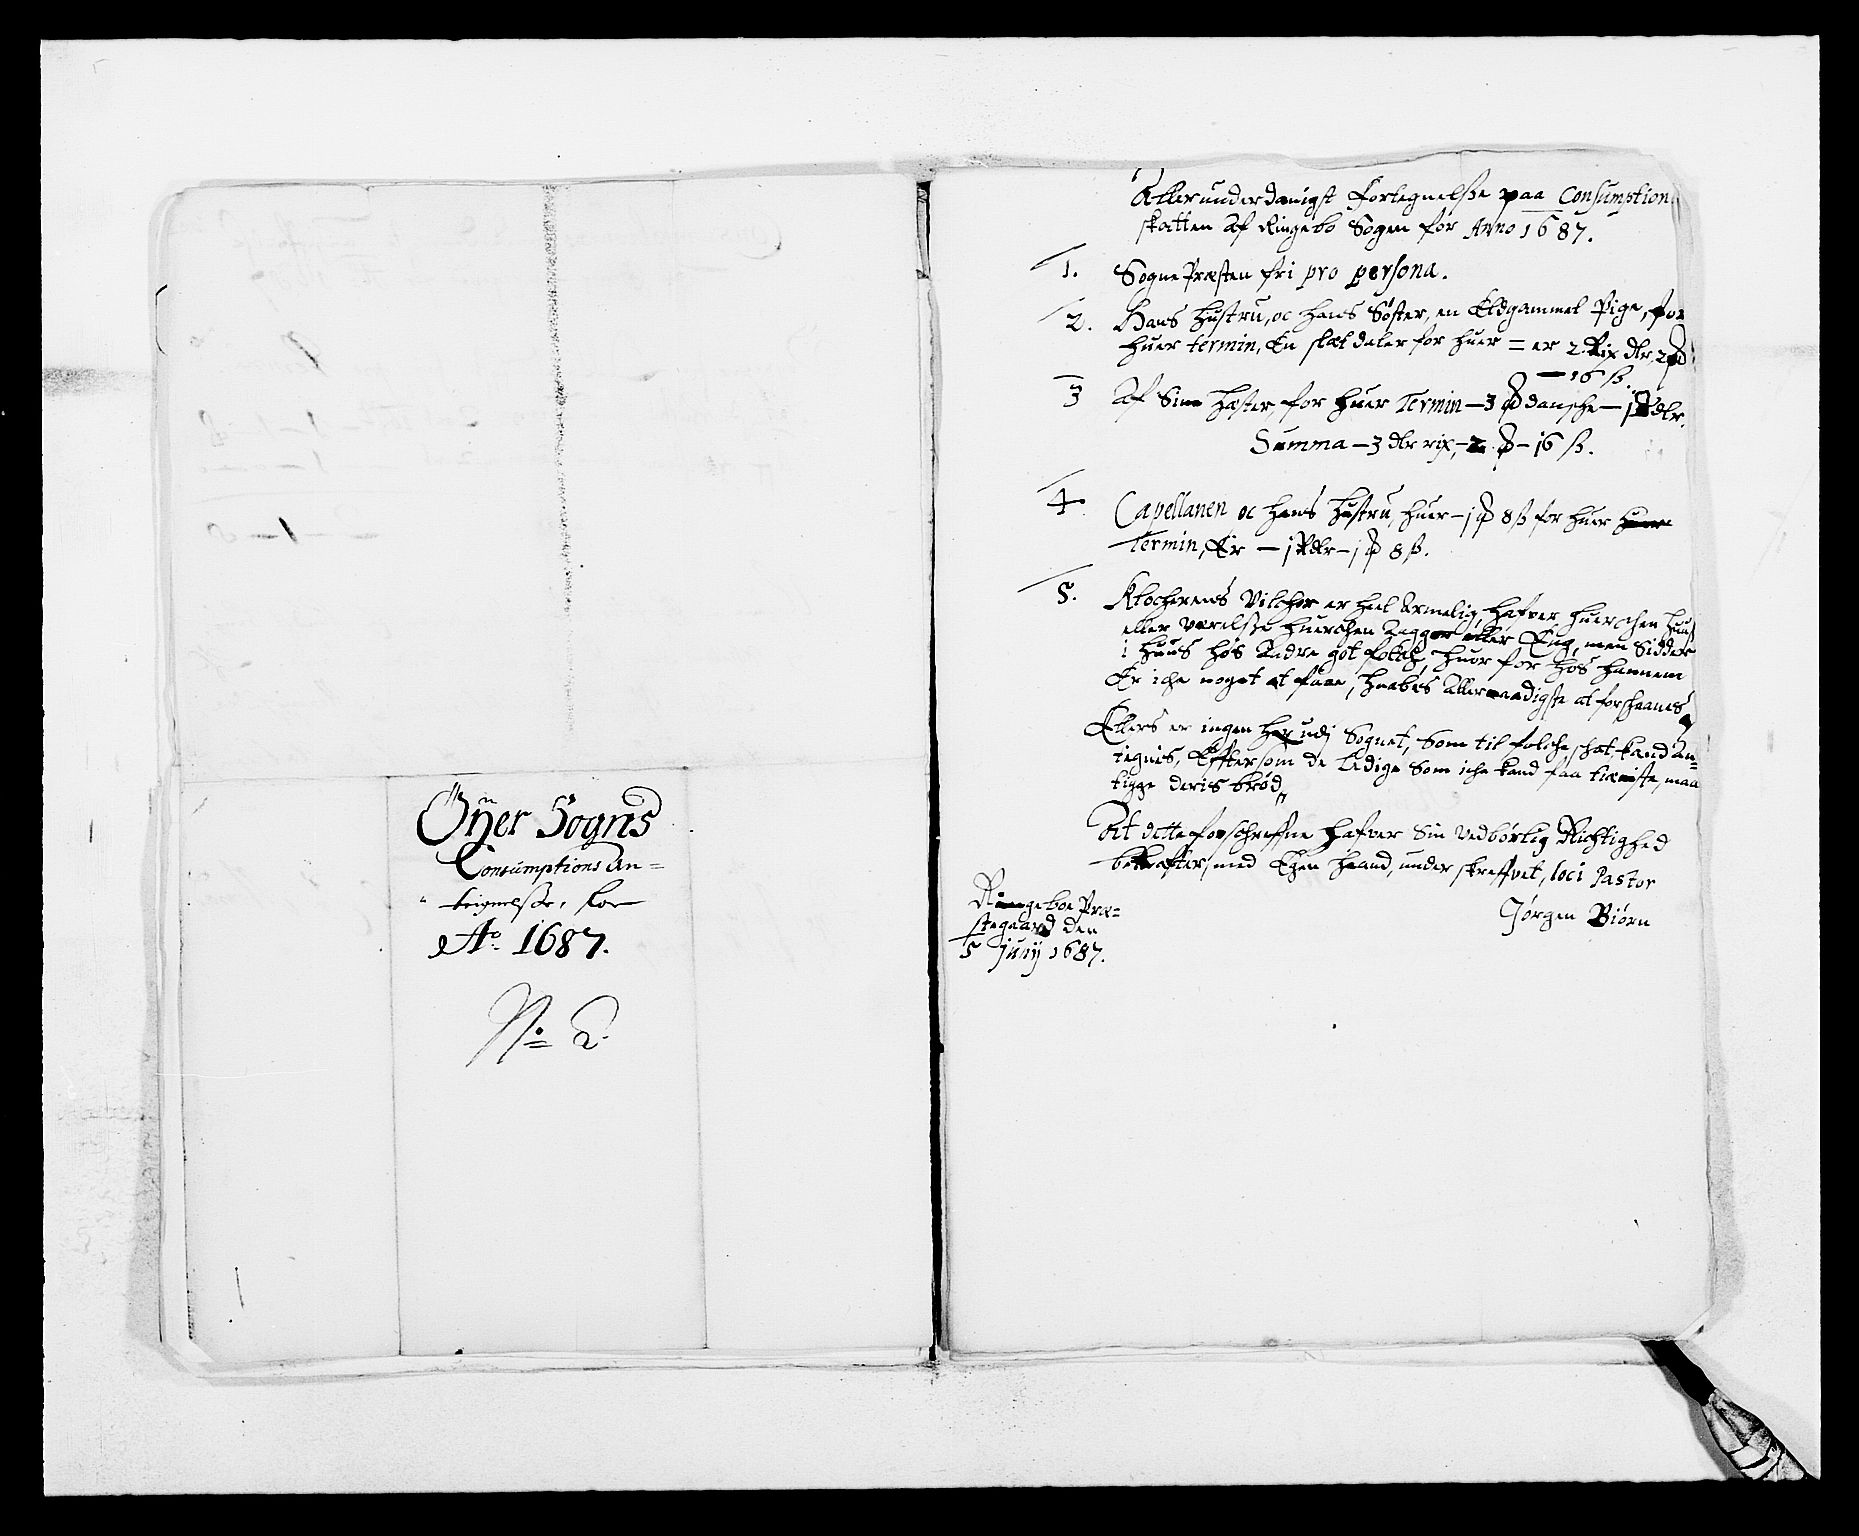 Öÿer Sogns
Consumptions An=
teignelsse, for
Ao. 1687.
No 2.
Allerunderdanigst Fortegnelsse paa Consumption
skatten af Ringebo Sogen for Anno 1687.
1. Sogne Præsten fri pro persona.
2. Hans Hustru, oc hans Søster, en Eldgammel Pige, for
huer termin, En slæt daler for huer = er 2 Rix dlr, 2
— 16 ß.
3 Af Sine Hæster for huer Termin — 3 danske — j Rdlr.
Summa — 3 dlr rix, — 2 — 16 ß.
4. Capellanen oc hans Hustru, huer — j 8 ß for huer
Termin, Er — j Rdlr — j 8 ß.
5. Klocherens Vilchor er heel Armelig, hafver huerchen Huus
eller værelsse huerchen Agger eller Eng, men Sidder
i Huus hos Andre got folch, huor for hos hannem
Er iche noget at faae, haabes Allernaadigste at forschaanes
Ellers er ingen her udj Sognet, Som til folcheschat kand An=
tegnis, Efftersom de Ledige Som iche kand faa tieniste, maa
tigge deris brød,
At dette forschreffne hafver Sin vedbørlig Richtighed
bekrafter, med Egen Haand, under skreffvet, loci Pastor
Jørgen Biørn
Ringeboe Præ=
stegaard den
5 Junij 1687.